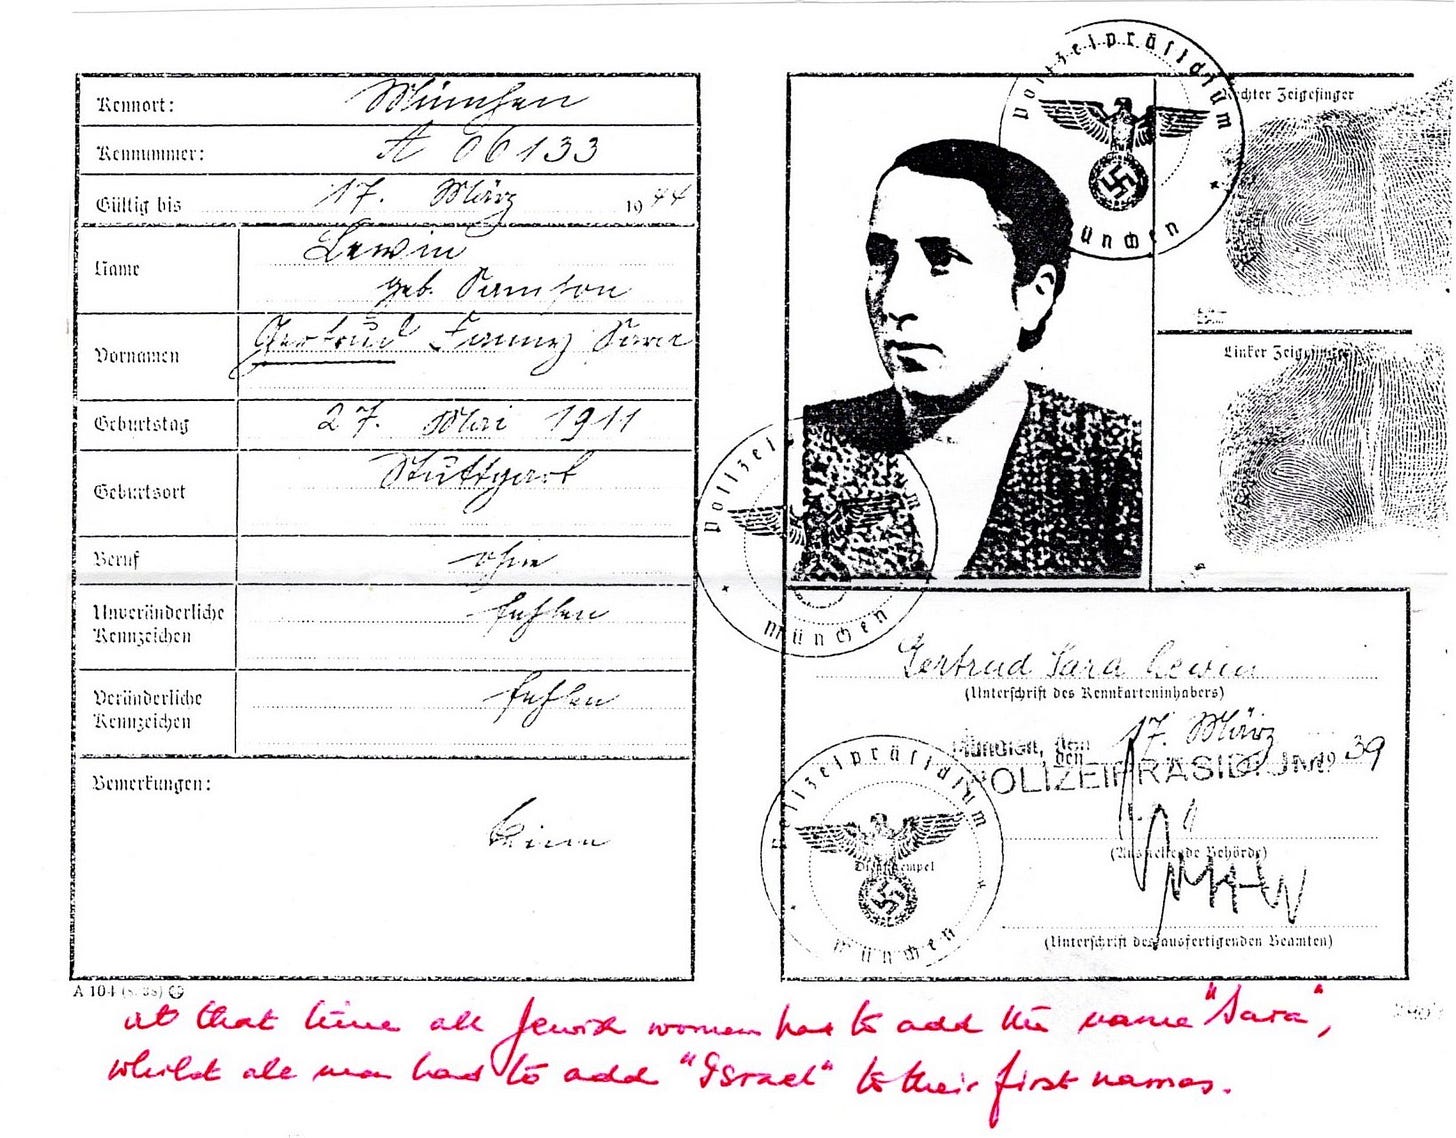 Kennort: München
Kennummer: A 06133
Gültig bis 17. März 1944
Name Lewin
geb. Samson
Vornamen Gertrud Fanny Sara
Geburtstag 27. Mai 1911
Geburtsort Stuttgart
Beruf ohne
Unveränderliche Kennzeichen fehlen
Veränderliche Kennzeichen fehlen
Bemerkungen:
Keine
A 104
Polizeipräsidium
München
Rechter Zeigefinger
Linker Zeigefinger
Polizeipräsidium
München
Gertrud Sara Lewin
(Unterschrift des Kennkarteninhabers)
München, den 17. März 1939
POLIZEIPRÄSIDIUM
(Ausstellende Behörde)
Polizeipräsidium
Dienststempel
München
(Unterschrift des ausfertigenden Beamten)
at that time all Jewish women had to add the name "Sara",
whilst all men had to add "Israel" to their first names.